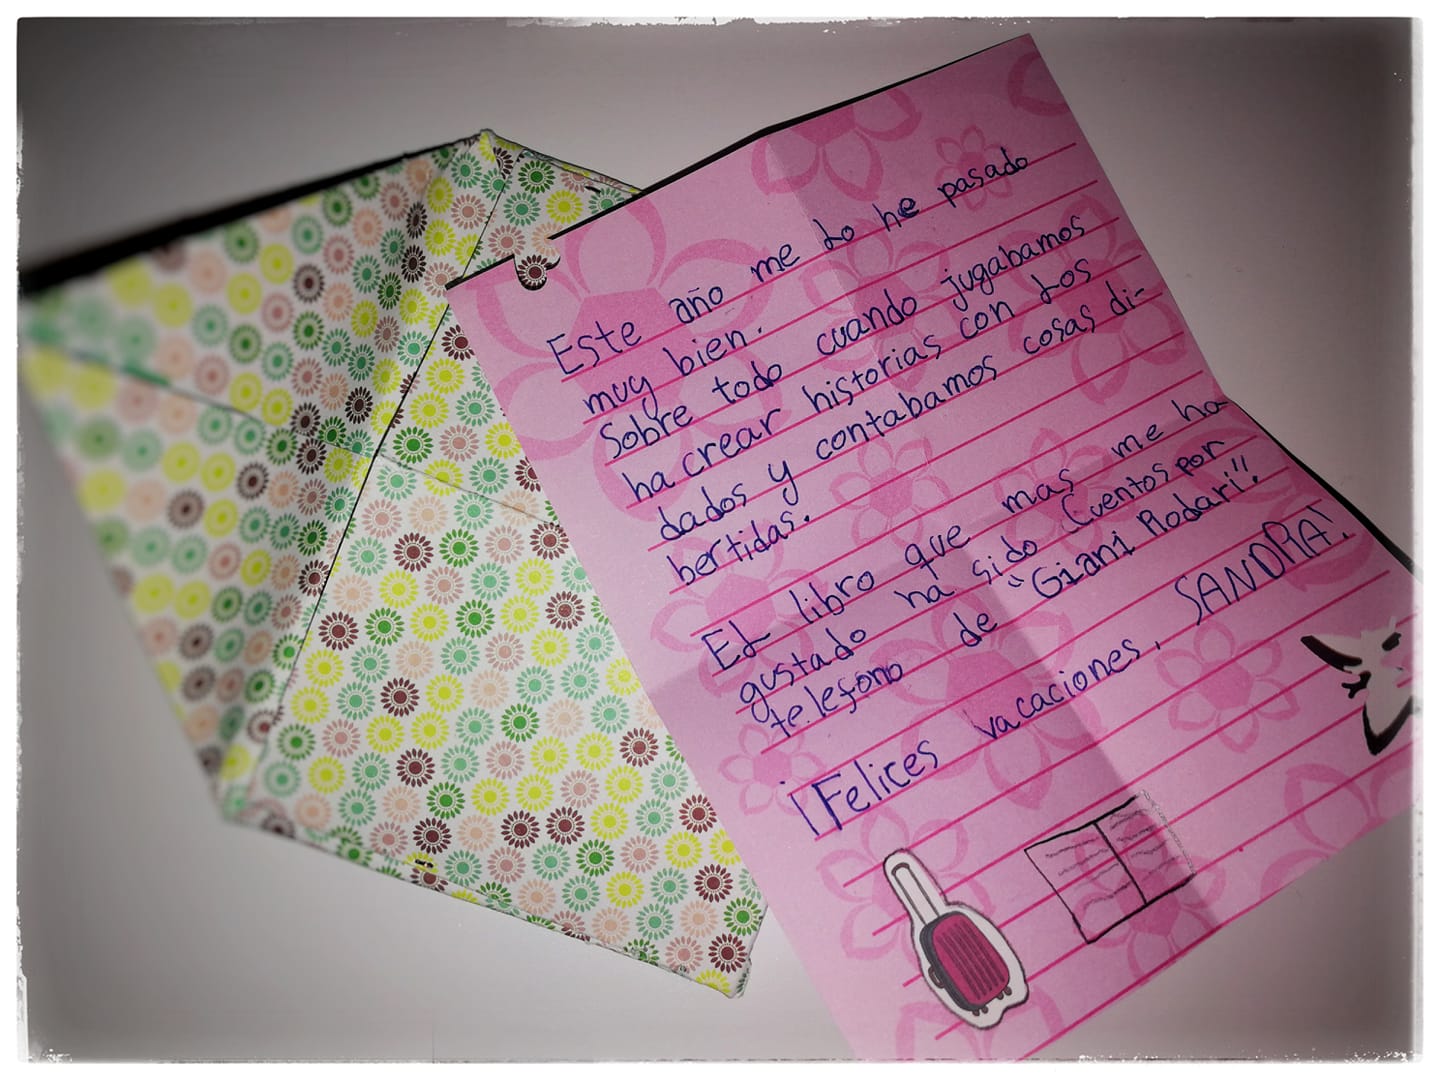 Este año me lo he pasado
muy bien.
Sobre todo cuando jugabamos
ha crear historias con los
dados y contabamos cosas di-
bertidas.
El libro que mas me ha
gustado ha sido Cuentos por
telefono de "Giani Rodari"!!
¡Felices vacaciones, SANDRA!